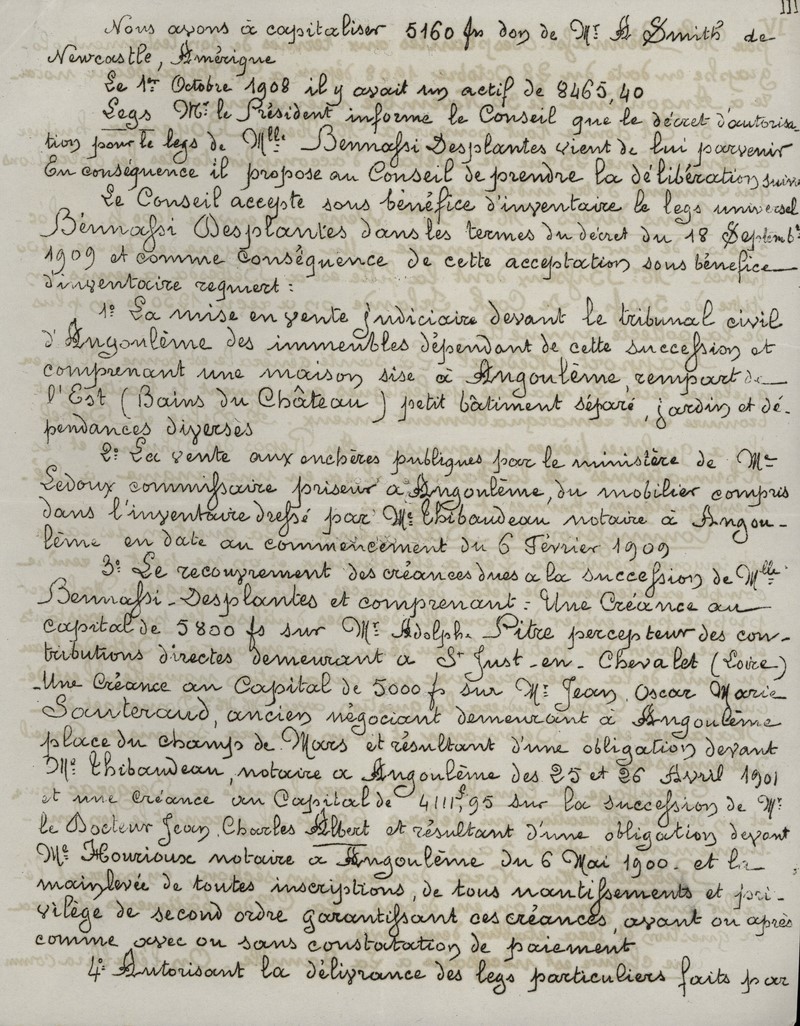 III
Nous avons à capitaliser 5160 frs don de Mr A Smith de
Newcastle, Amérique
Le 1er Octobre 1908 il y avait un actif de 8465,40
Legs Mr le Président informe le Conseil que le décret d'autorisa
tion pour le legs de Mlle Bennassi Desplantes vient de lui parvenir
En conséquence il propose au Conseil de prendre la délibération suiv
Le Conseil accepte sous bénéfice d'inventaire le legs universel
Bennassi Desplantes dans les termes du décret du 18 Septemb
1909 et comme conséquence de cette acceptation sous bénéfice
d'inventaire requiert :
1° La mise en vente judiciaire devant le tribunal civil
d'Angoulême des immeubles dépendant de cette succession et
comprenant une maison sise à Angoulême, rempart de
l'Est (Bains du Château) petit bâtiment séparé, jardin et dé-
pendances diverses
2° La vente aux enchères publiques par le ministère de Me
Ledoux commissaire priseur à Angoulême, du mobilier compris
dans l'inventaire dressé par Me Thibaudeau notaire à Angou-
lême en date au commencement du 6 Février 1909
3° Le recouvrement des créances dues a la succession de Mlle
Bennassi-Desplantes et comprenant : Une Créance au
Capital de 5800 fs sur Mr Adolphe Pitre percepteur des con-
tributions directes demeurant a St Just-en-Chevalet (Loire)
-Une Créance au Capital de 5000 f sur Mr Jean, Oscar Marie
Sauteraud, ancien négociant demeurant à Angoulême
place du Champ de Mars et résultant d'une obligation devant
Me Thibaudeau, notaire a Angoulême des 25 et 26 Avril 1901
et une Créance au Capital de 4111f,95 sur la succession de Mr
le Docteur Jean, Charles Albert et résultant d'une obligation devant
Me Hourioux notaire à Angoulême du 6 Mai 1900. et la
mainlevée de toutes inscriptions, de tous nantissements et pri-
vilège de second ordre garantissant ces créances, avant ou après
comme avec ou sans constatation de paiement
4° Autorisant la délivrance des legs particuliers faits par